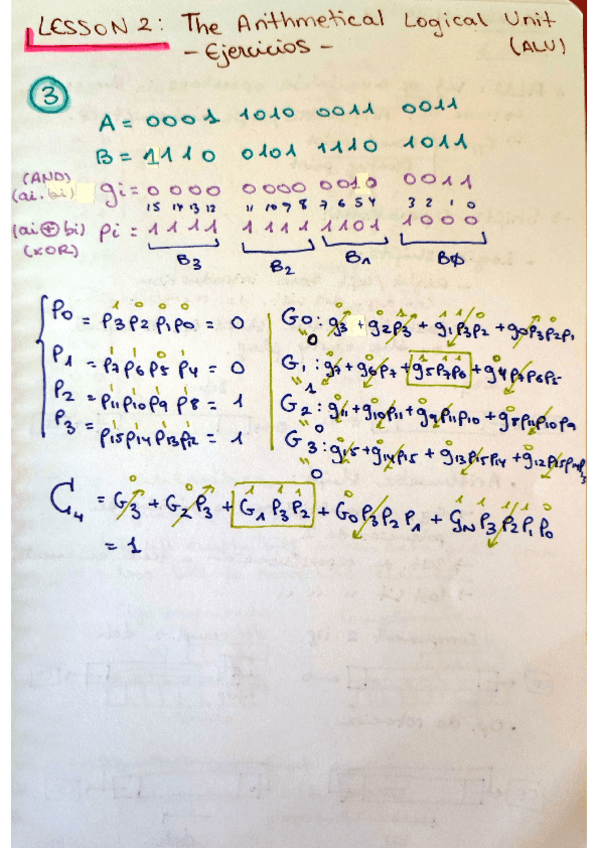 LESSON 2: The Arithmetical Logical Unit
- Ejercicios - (ALU)
3
A = 0001 1010 0011 0011
B = 1110 0101 1110 1011
(AND)
(ai.bi) gi = 0000 0000 0010 0011
15 14 13 12 11 10 9 8 7 6 5 4 3 2 1 0
(ai⊕bi) pi = 1111 1111 1101 1000
(XOR)
B3 B2 B1 BØ
P0 = p3p2p1p0 = 0
P1 = p7p6p5p4 = 0
P2 = p11p10p9p8 = 1
P3 = p15p14p13p12 = 1
G0: g3 + g2p3 + g1p3p2 + g0p3p2p1
0
G1: g7 + g6p7 + g5p7p6 + g4p7p6p5
1
G2: g11 + g10p11 + g9p11p10 + g8p11p10p9
0
G3: g15 + g14p15 + g13p15p14 + g12p15p14p13
0
C4 = G3 + G2P3 + G1P3P2 + G0P3P2P1 + GNP3P2P1P0
= 1